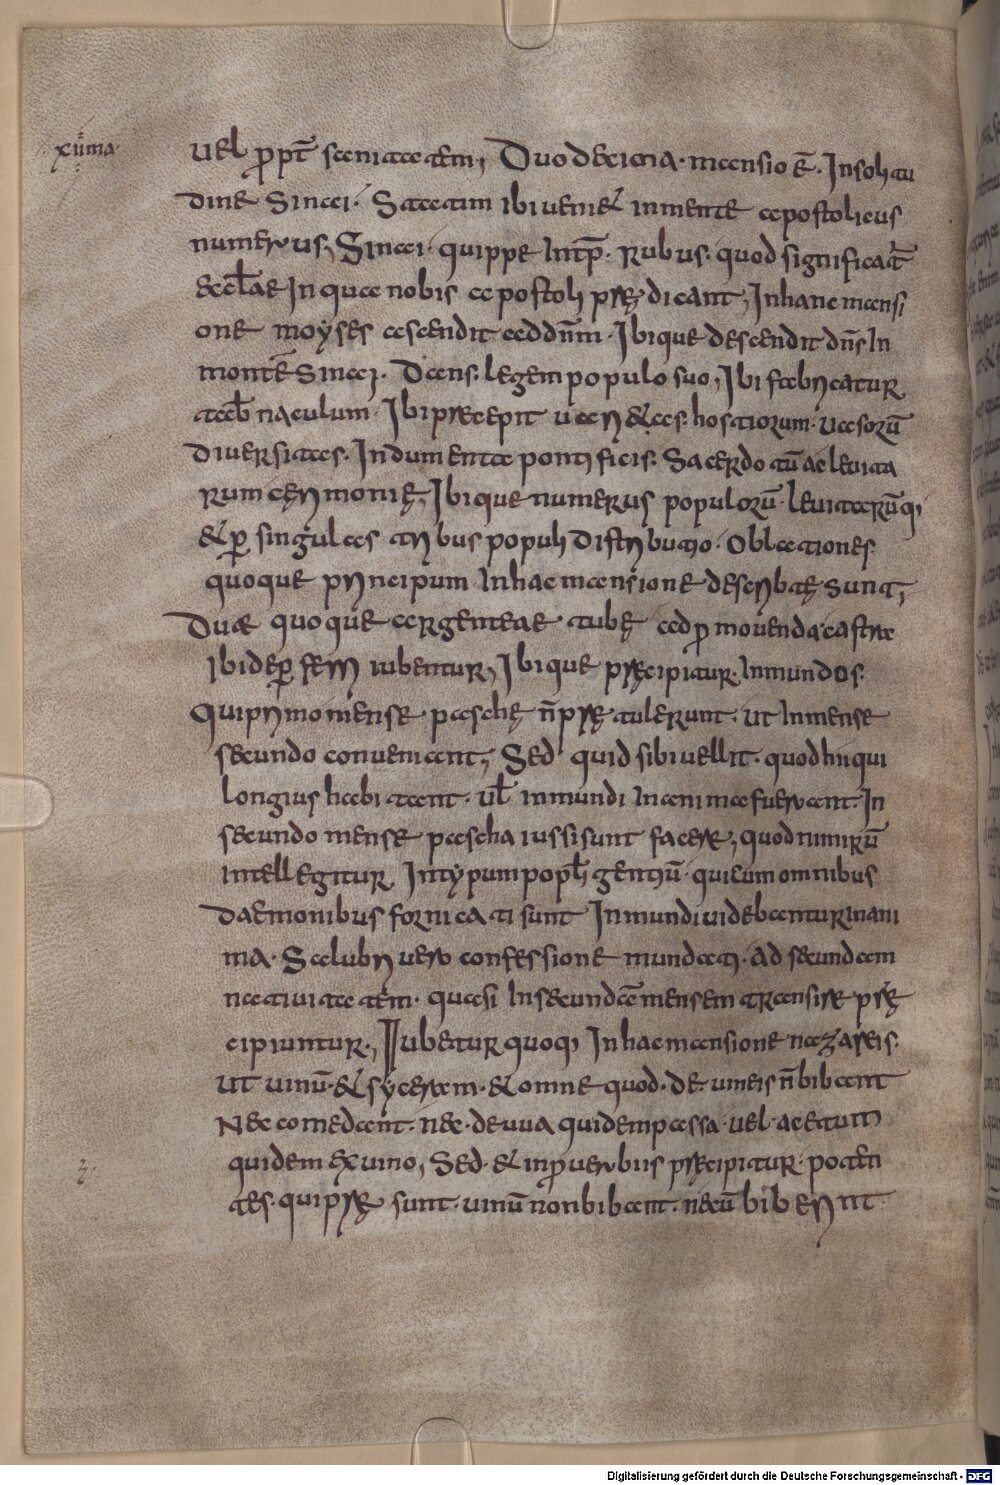 xii̅ma
uel ꝓpt̅ sanitatem, Duodecima · mansio ē · Insolitu
dine Sinai · Statim Ibi ueniet inmente apostolicus
numerus, Sinai · quippe Intp̅ · Rubus · quod significat
aecl̅ae In qua nobis apostoli prędicant, In hanc mansi
one moyses ascendit addn̅m · Ibique descendit dn̅s In
montē Sinai · Dans · legem populo suo, Ibi fabricatur
tab̅naculum · Ibi praecepit uarietas · hostiarum · uasorū
diuersitas · Indumenta pontificis · Sacerdotū ac leuita
rum cęrimonię, Ibique numerus populorū · leuitarūq;
& ꝑ singulas tribus populi distributio · Oblationes
quoque principum In hac mansione descriptę sunt,
Duae quoque argenteae · tubę ad ꝓmouenda castra
Ibidem fieri iubentur, Ibique pręcipitur · Inmundos ·
Qui primo mense paschę n̅ prętulerunt · ut In mense
secundo conueniant, Sed quid sibi uellit · quod hii qui
longius habitant · ul̅ inmundi In anima fuerant · In
secundo mense pascha iussi sunt facere, quod nimirū
Intellegitur In typum popl̅i gentiū · qui cum omnibus
daemonibus fornicati sunt Inmundi uidebantur In ani
ma · Salubri uero confessione mundati · ad secundam
natiuitatem · quasi In secundā mensem transire prę
cipiuntur ·, Iubetur quoq; In hac mansione nazareis ·
ut uinū · & syceram · & omne quod · de · uineis n̅ bibant
Nec comedant · nec · de uua quidem passa · uel · acetum
quidem ex uino, Sed · & in ꝓuerbiis pręcipitur · poten
tes · qui pręsunt · uinū non bibant · ne cū biberint
DIGITALISIERUNG gefördert durch die Deutsche Forschungsgemeinschaft - DFG